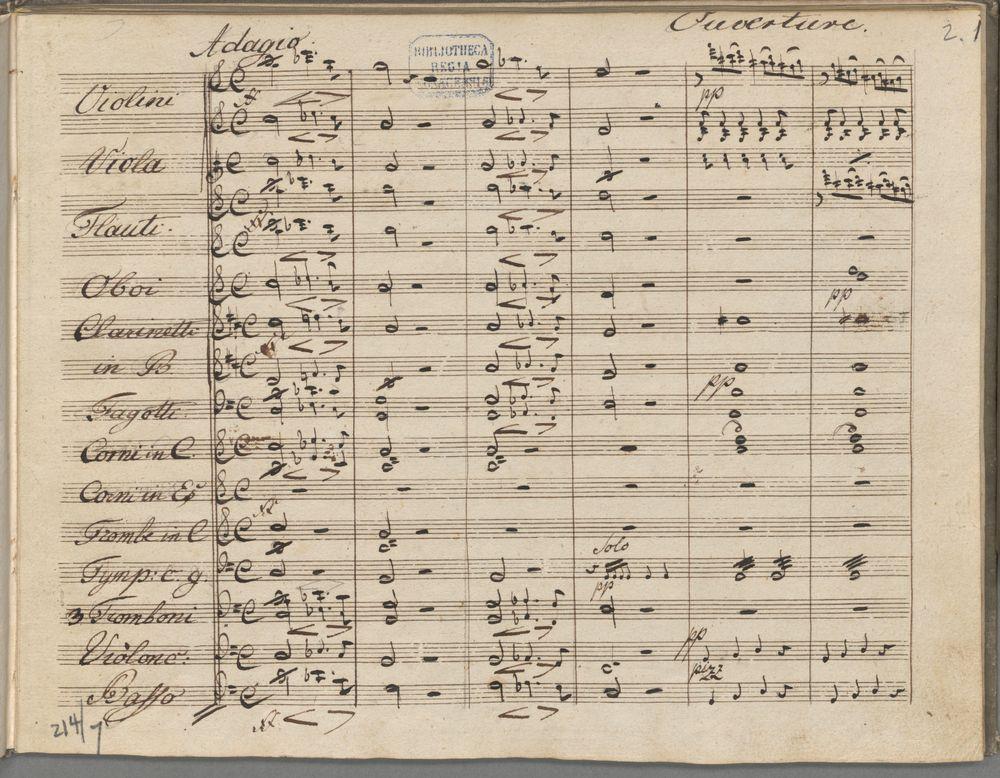 Ouverture.
2.1
Adagio.
BIBLIOTHECA
REGIA
Violini
pp
Viola
Flauti.
Oboi
pp
Clarinetti
in B
pp
Fagotti.
Corni in C
Corni in Es
Trombe in C
Solo
Tymp: c. g.
pp
3 Tromboni
pp
Violonc:
pizz
Basso
214/